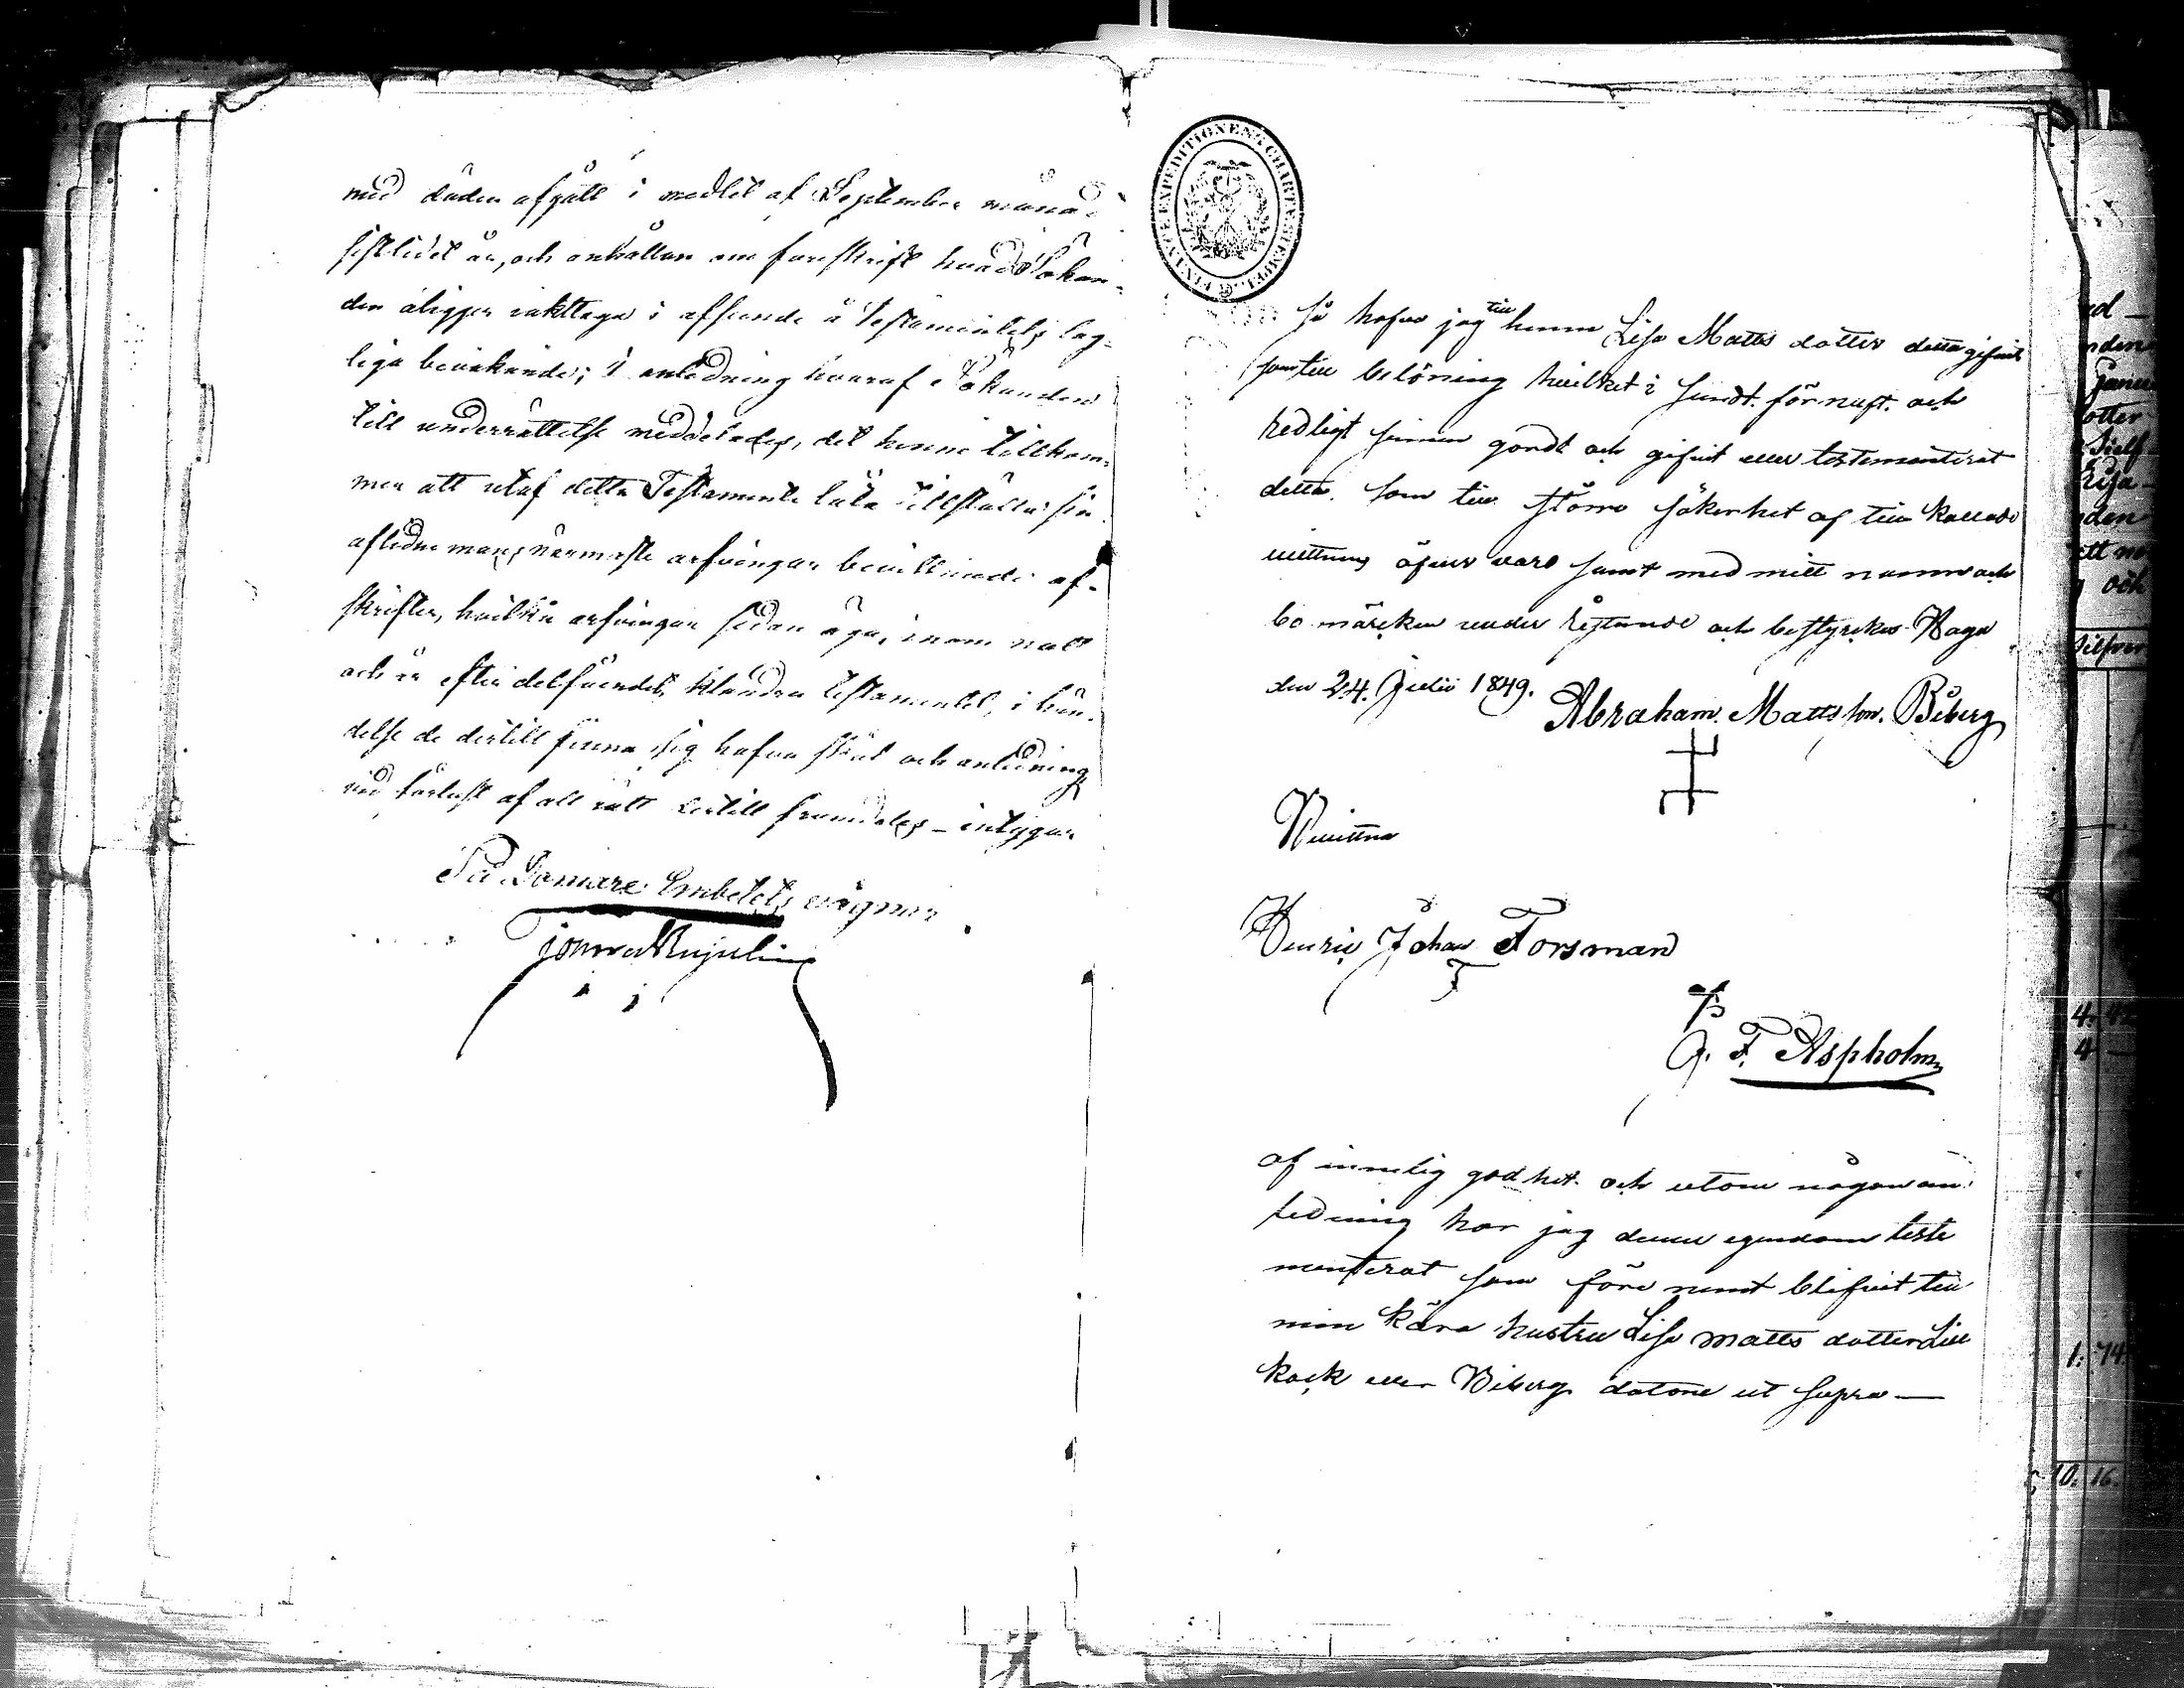 med döden afgått i medlet af September månad
sistlidet år, och anhållan om föreskrift hvad Sökan-
den åligger iakttaga i afseende å Testamentets lag-
liga bevakande; i anledning hvaraf Sökanden
till underrättelse meddelades, det henne tillkom-
mer att utaf detta Testamente låta tillställa sin
aflidne mans närmaste arfvingar bevittnade af-
skrifter, hvilka arfvingar sedan äga, inom natt
och år efter delfåendet, klandra testamentet, i hän-
delse de dertill finna sig hafva skäl och anledning
vid förlust af all rätt dertill framdeles - intygar
På Domare Embetets vägnar

FINANCE EXPEDITIONENS CHARTÆ STEMPEL
så hafver jag till henne Lisa Matts dotter detta gifvit
som till belöning hvilket i sundt förnuft och
redligt sinne gordt och gifvit eller testementerat
detta, som till större säkerhet af till kallade
vittnens öfver varo samt med mitt namn och
bo märcken under ristande och bestyrckes Haga
den 24. Julii 1849.
Abraham Matts son Biberg
Vittna
Henric Johan Forsman
F
F
G. F. Aspholm
af innelig godhet och utom någon an
ledning har jag denna egendom teste
menterat som före nemt blifvit till
min kära hustru Lisa matts dotter Lill
kack eller Biberg datone ut supra —

nden
Janu
otter
Sielf
Lisa
den
ett
och
Silfver
4.
4 —
1. 74
10. 16.